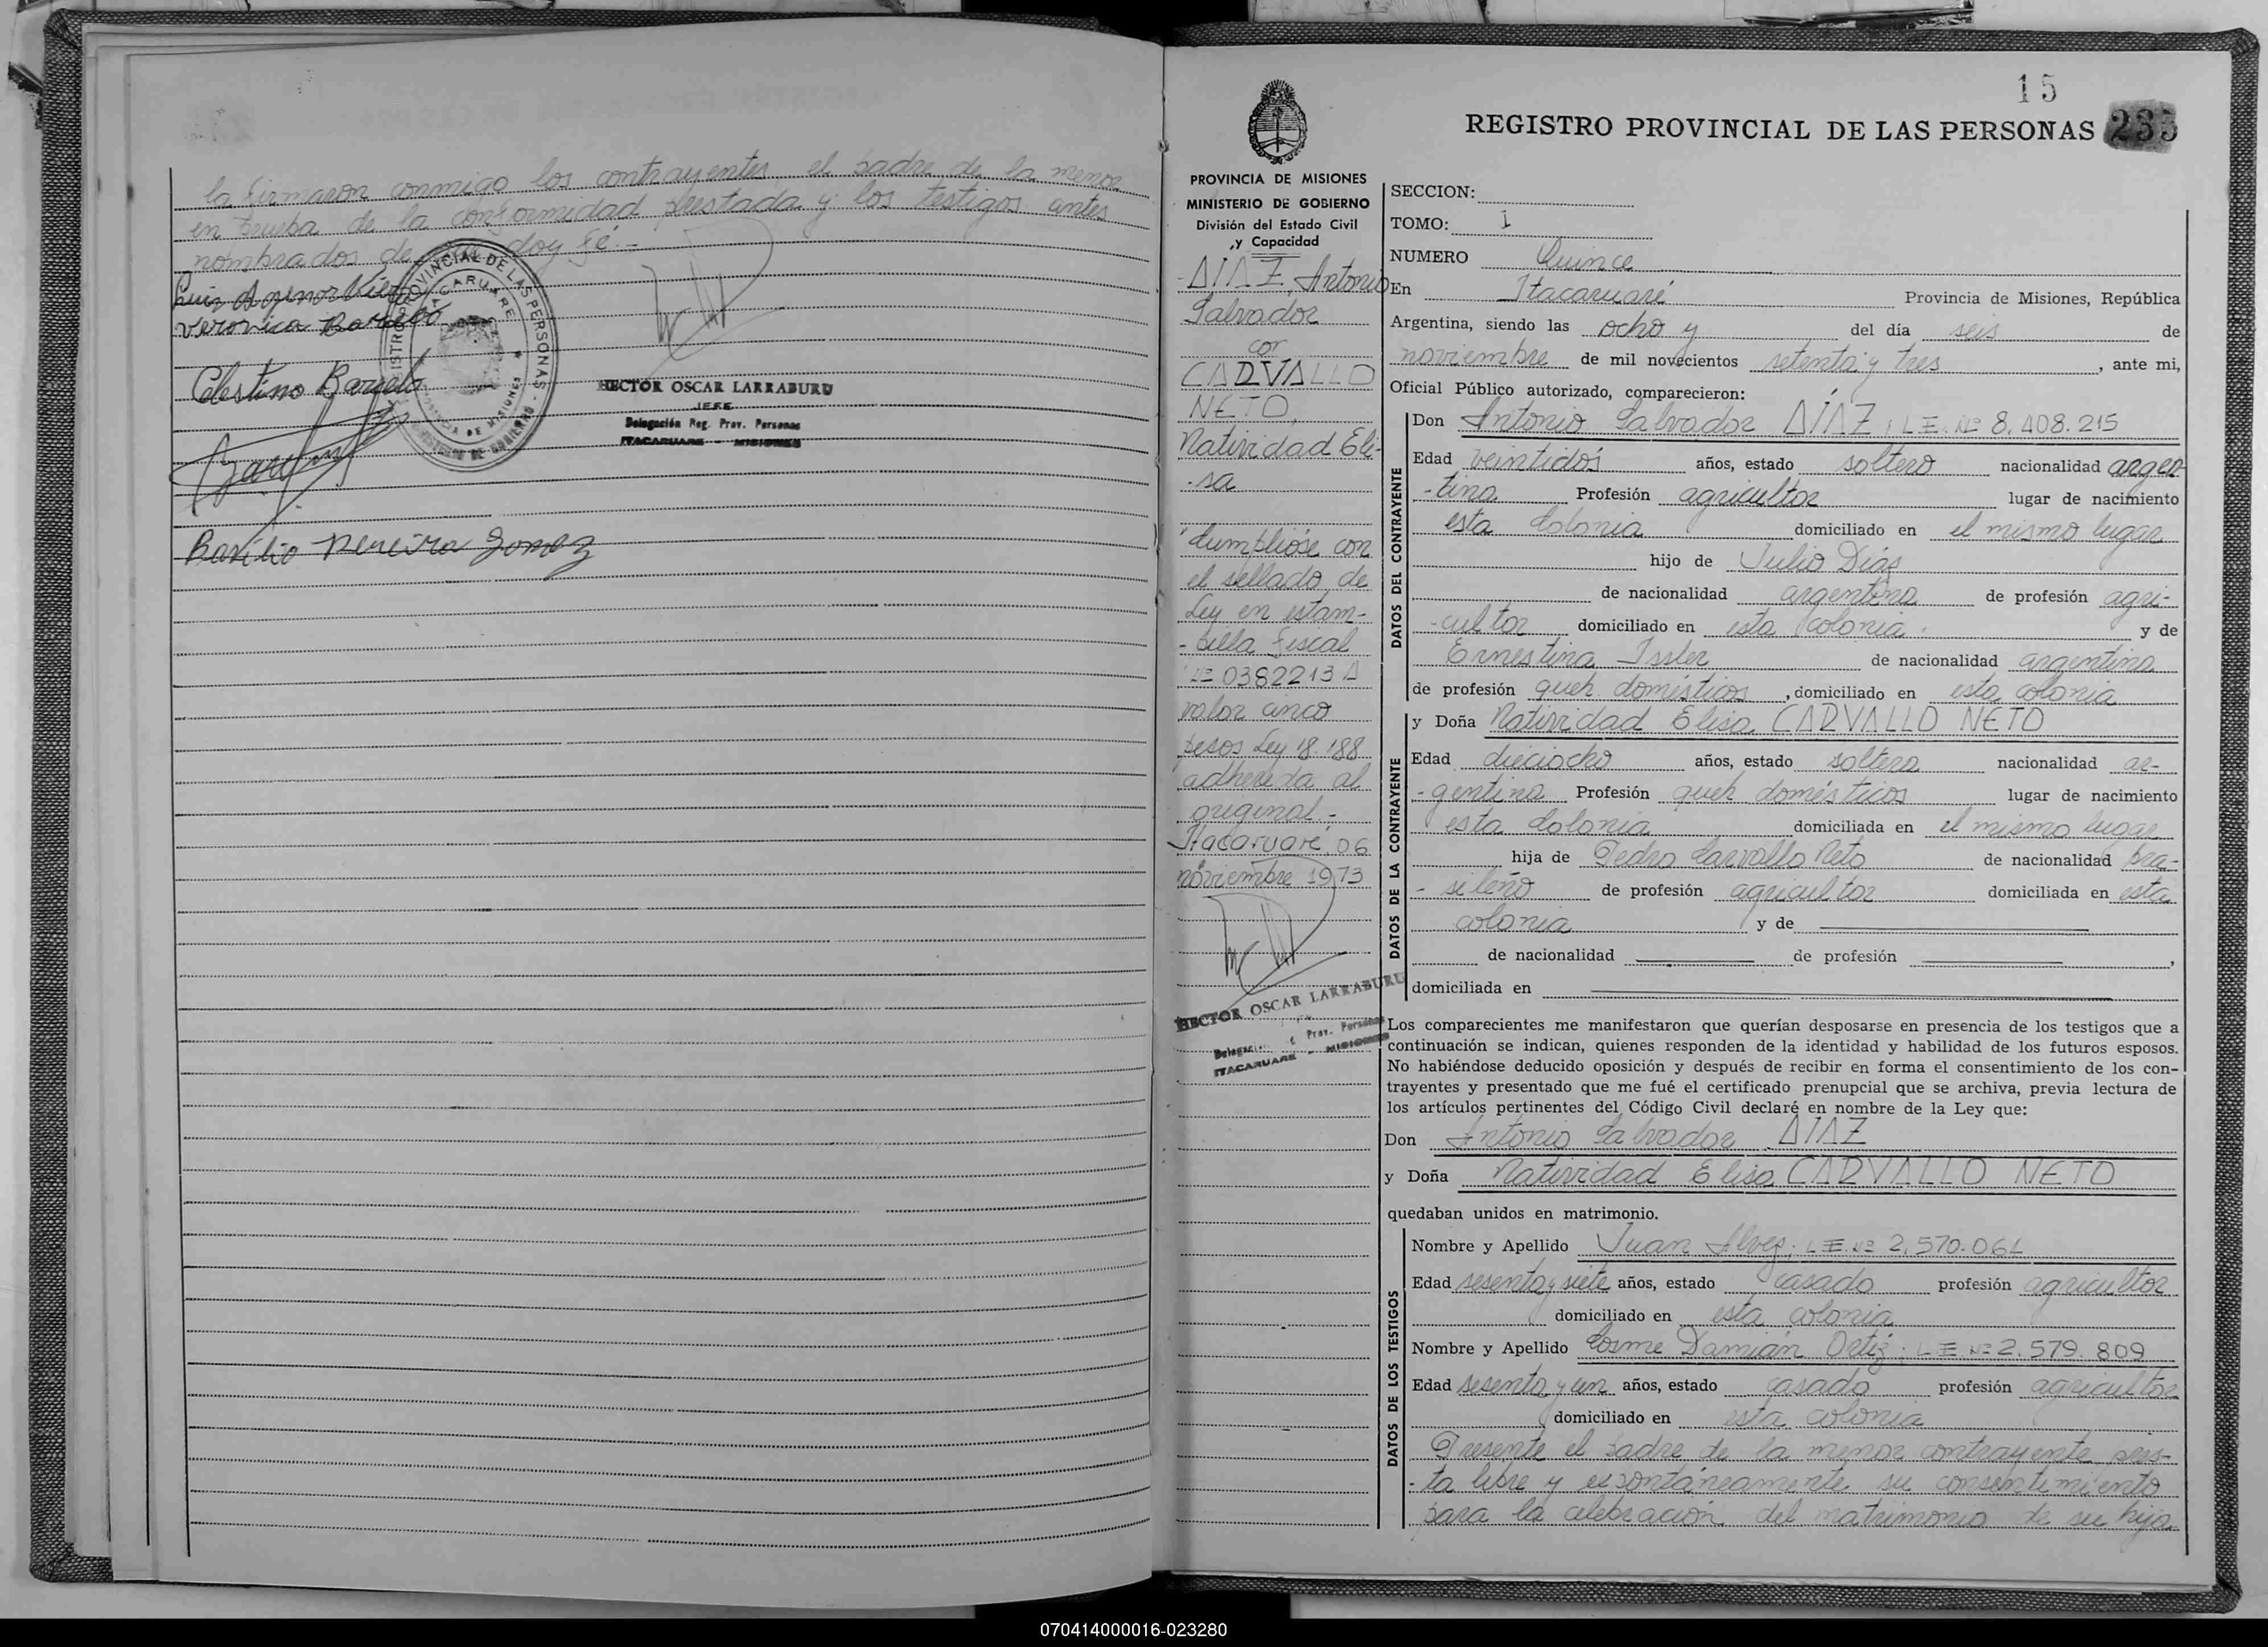 la firmaron conmigo los contrayentes el padre de la menor
en prueba de la conformidad prestada y los testigos antes
nombrados de doy fé.-
Luis Agenor
Veronica
Celestino
Basilio Pereira Gomez
REGISTRO PROVINCIAL DE LAS PERSONAS
ITACARUARE
HECTOR OSCAR LARRABURU
JEFE
Delegación Reg. Prov. Personas
ITACARUARE - MISIONES
15
REGISTRO PROVINCIAL DE LAS PERSONAS 235
PROVINCIA DE MISIONES
MINISTERIO DE GOBIERNO
División del Estado Civil
y Capacidad
-DIAZ, Antonio
Salvador
con
CARVALLO
NETO,
Natividad Eli-
-sa
Cumplióse con
el sellado de
Ley en estam-
-pilla fiscal
Nº 0382213 A
valor cinco
pesos Ley 18.188
adherida al
original.-
Itacaruaré, 06
noviembre 1973
HECTOR OSCAR LARRABURU
Prov. Personas
ITACARUARE - MISIONES
SECCION:
TOMO: I
NUMERO Quince
En Itacaruaré Provincia de Misiones, República
Argentina, siendo las ocho y del día seis de
noviembre de mil novecientos setenta y tres, ante mi,
Oficial Público autorizado, comparecieron:
DATOS DEL CONTRAYENTE
Don Antonio Salvador DÍAZ; L.E. Nº 8.408.215
Edad veintidós años, estado soltero nacionalidad argen-
-tina Profesión agricultor lugar de nacimiento
esta Colonia domiciliado en el mismo lugar
hijo de Julio Diáz
de nacionalidad argentina de profesión agri-
-cultor domiciliado en esta colonia y de
Ernestina Issler de nacionalidad argentina
de profesión queh. domésticos, domiciliado en esta colonia
DATOS DE LA CONTRAYENTE
y Doña Natividad Elisa CARVALLO NETO
Edad dieciocho años, estado soltera nacionalidad ar-
-gentina Profesión queh domésticos lugar de nacimiento
esta Colonia domiciliada en el mismo lugar
hija de Pedro Carvallo Neto de nacionalidad bra-
-sileño de profesión agricultor domiciliada en esta
colonia y de
de nacionalidad de profesión ,
domiciliada en
Los comparecientes me manifestaron que querían desposarse en presencia de los testigos que a
continuación se indican, quienes responden de la identidad y habilidad de los futuros esposos.
No habiéndose deducido oposición y después de recibir en forma el consentimiento de los con-
trayentes y presentado que me fué el certificado prenupcial que se archiva, previa lectura de
los artículos pertinentes del Código Civil declaré en nombre de la Ley que:
Don Antonio Salvador DIAZ
y Doña Natividad Elisa CARVALLO NETO
quedaban unidos en matrimonio.
DATOS DE LOS TESTIGOS
Nombre y Apellido Juan Alvez; L.E. Nº 2.570.061
Edad sesenta y siete años, estado casado profesión agricultor
domiciliado en esta colonia
Nombre y Apellido Cosme Damián Ortiz; L.E. Nº 2.579.809
Edad sesenta y un años, estado casado profesión agricultor
domiciliado en esta colonia
Presente el padre de la menor contrayente pres-
-ta libre y espontáneamente su consentimiento
para la celebración del matrimonio de su hija
070414000016-023280